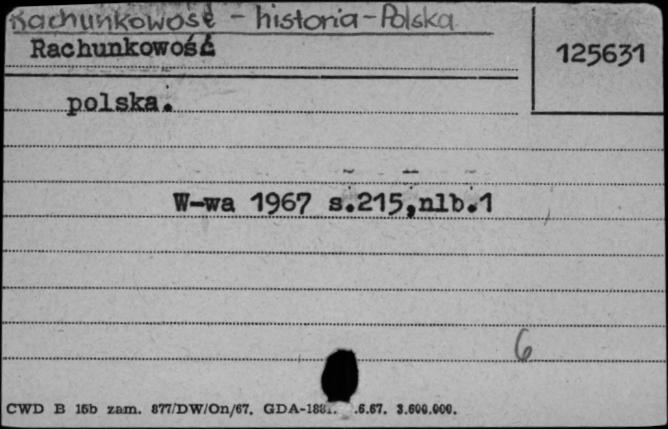 Rachunkowość - historia - Polska
Rachunkowość
125631
polska.
W-wa 1967 s.215,nlb.1
6
CWD B 15b zam. 877/DW/On/67. GDA- .6.67. 3.600.000.